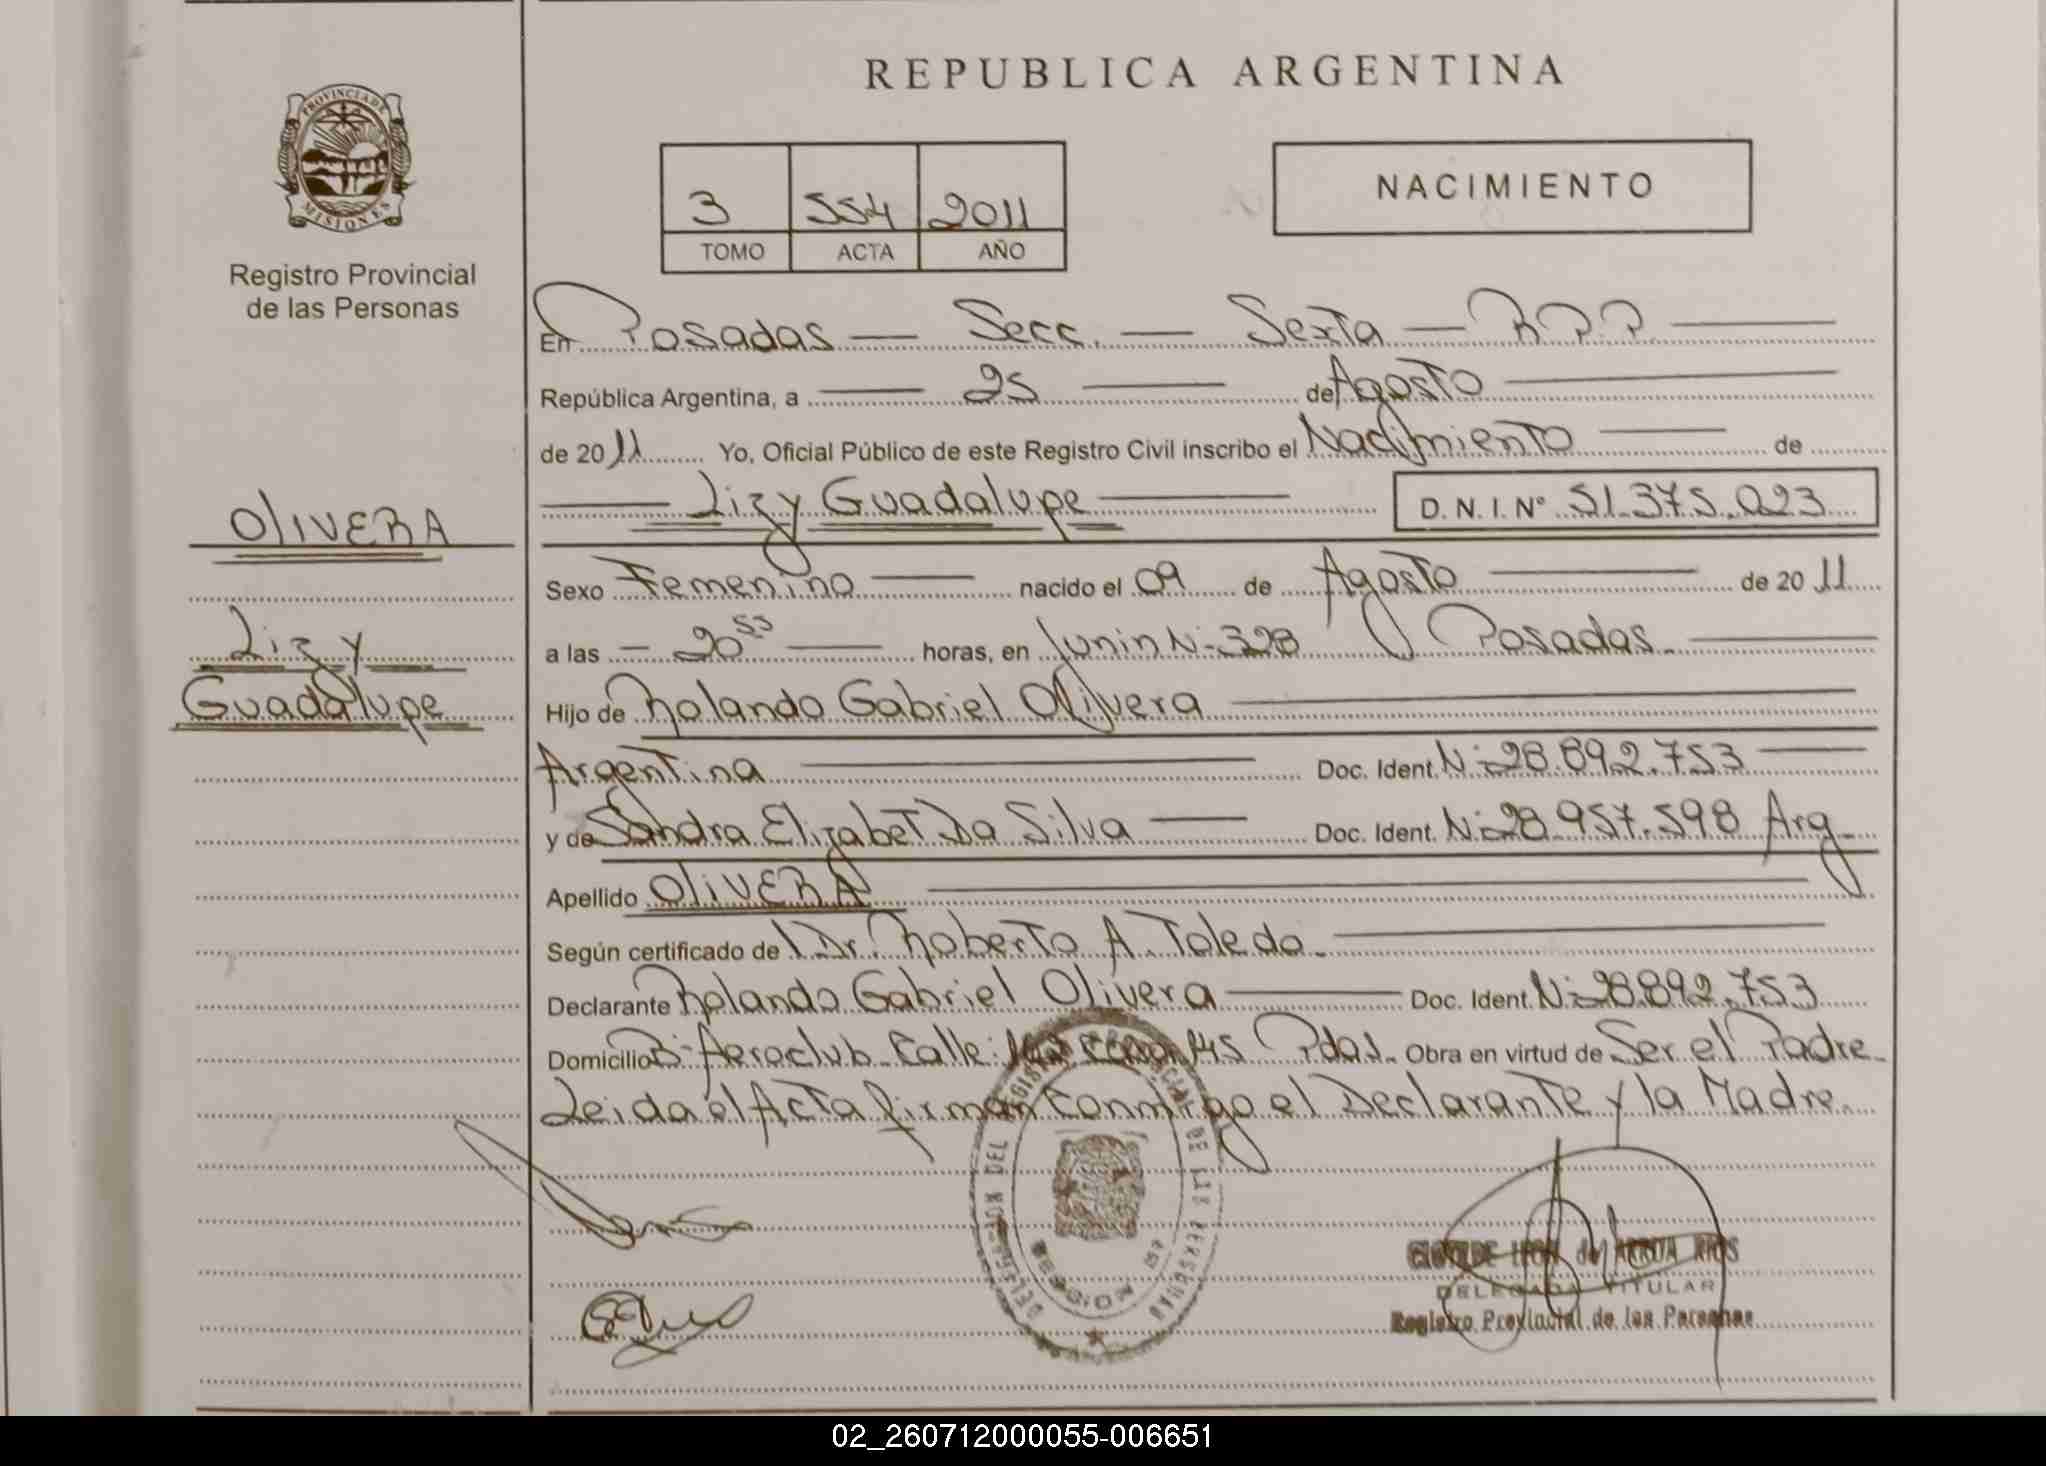 REPUBLICA ARGENTINA
PROVINCIA DE MISIONES
Registro Provincial
de las Personas
3 554 2011
TOMO ACTA AÑO
NACIMIENTO
En Posadas — Secc. — Sexta — R.P.P. —
República Argentina, a — 25 — de Agosto —
de 2011 Yo, Oficial Público de este Registro Civil inscribo el Nacimiento — de
— Lizy Guadalupe — D. N. I. Nº 51.375.023
OLIVERA
Lizy
Guadalupe
Sexo Femenino — nacido el 09 de Agosto — de 2011
a las — 20 53 — horas, en Junin Nº 328 Posadas. —
Hijo de Rolando Gabriel Olivera —
Argentina — Doc. Ident. Nº 28.892.753 —
y de Sandra Elizabet Da Silva — Doc. Ident. Nº 28.957.598 Arg.
Apellido OLIVERA —
Según certificado de Dr. Roberto A. Toledo. —
Declarante Rolando Gabriel Olivera — Doc. Ident. Nº 28.892.753
Domicilio Bº Aeroclub Calle Pdas. Obra en virtud de Ser el Padre
Leida el Acta firman conmigo el Declarante y la Madre.
DELEGADA TITULAR
Registro Provincial de las Personas
02_260712000055-006651